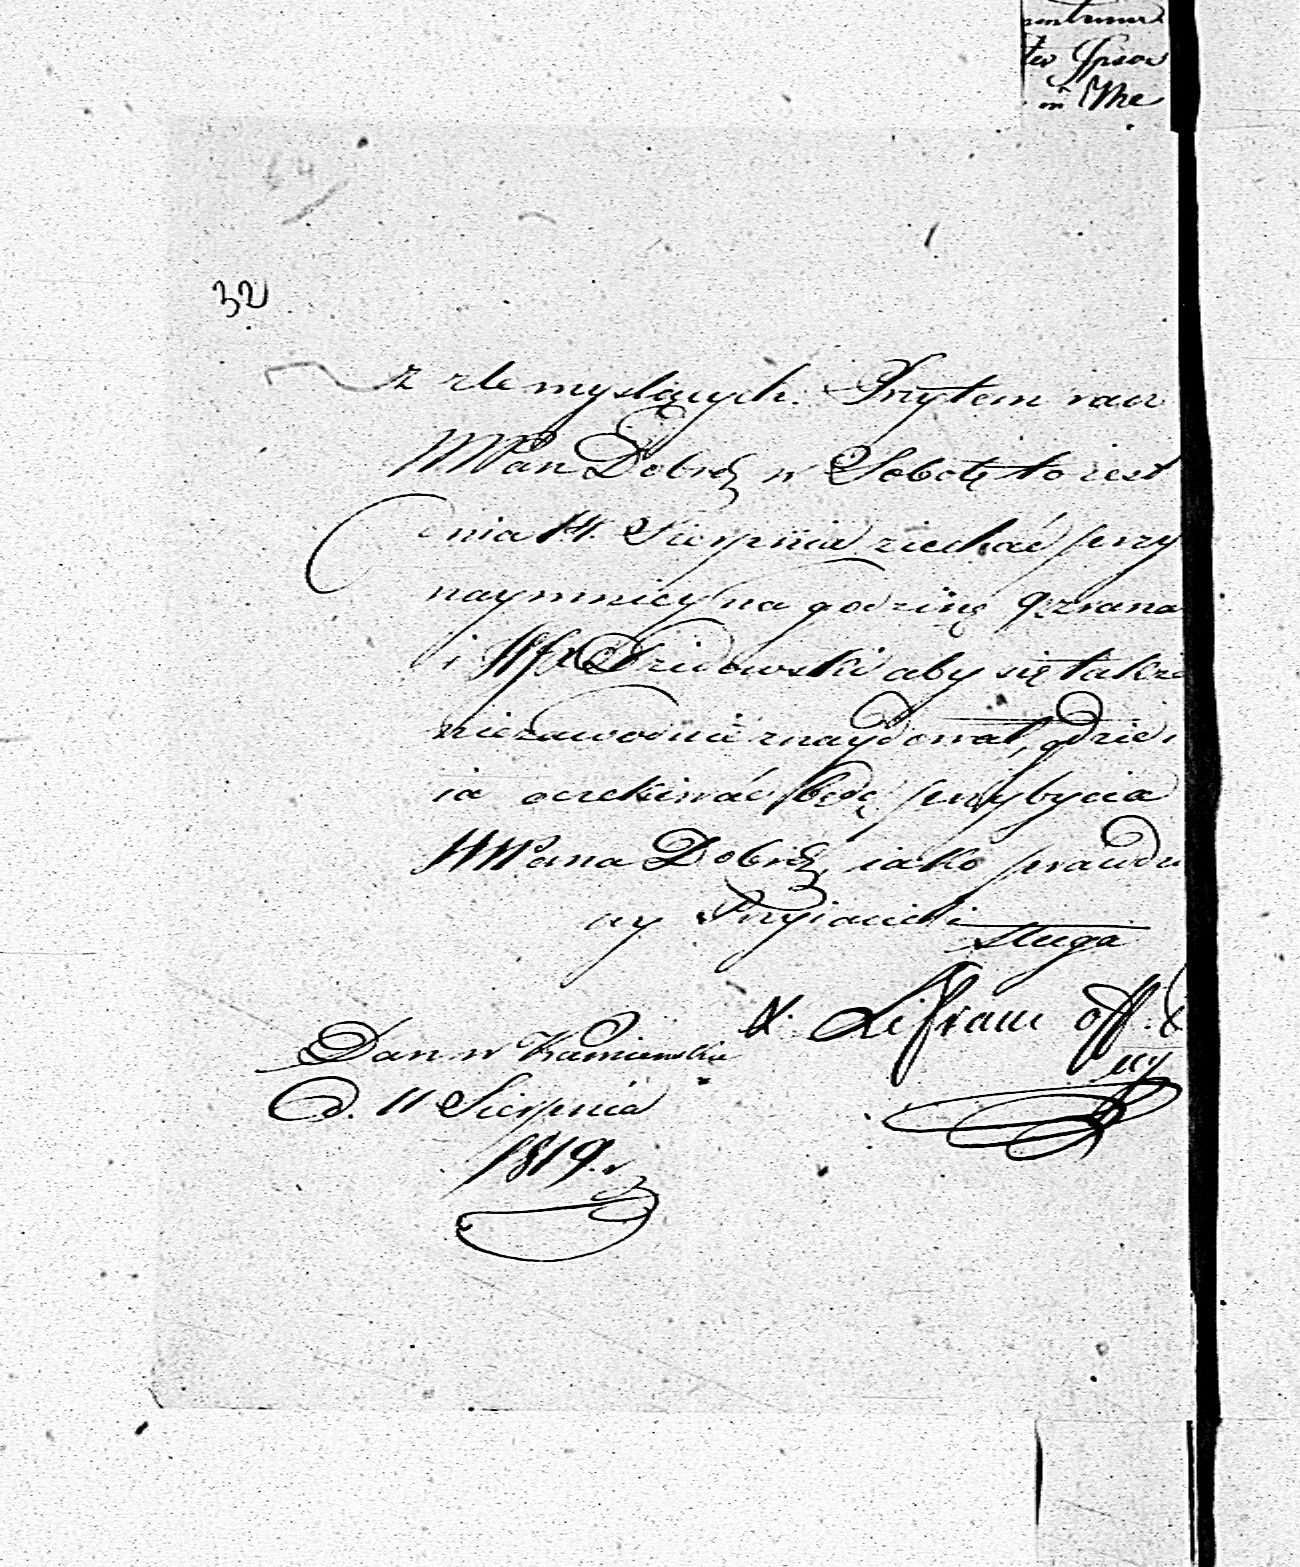 ten Ipsa
in The
32
z zle myslących. Przytem racz
WWPan Dobrdz w Sobotę to iest
dnia 14. Sierpnia ziechać przy
naymniey na godzinę 9 zrana
i aby się także
niezawodnie znaydował, gdzie i
ia oczekiwać będę przybycia
WWPana Dobrdz, iako prawdzi
wy Przyiaciel i
Sługa
X. Off.
Dan w Kamiensku
d. 11 Sierpnia
1819. r.